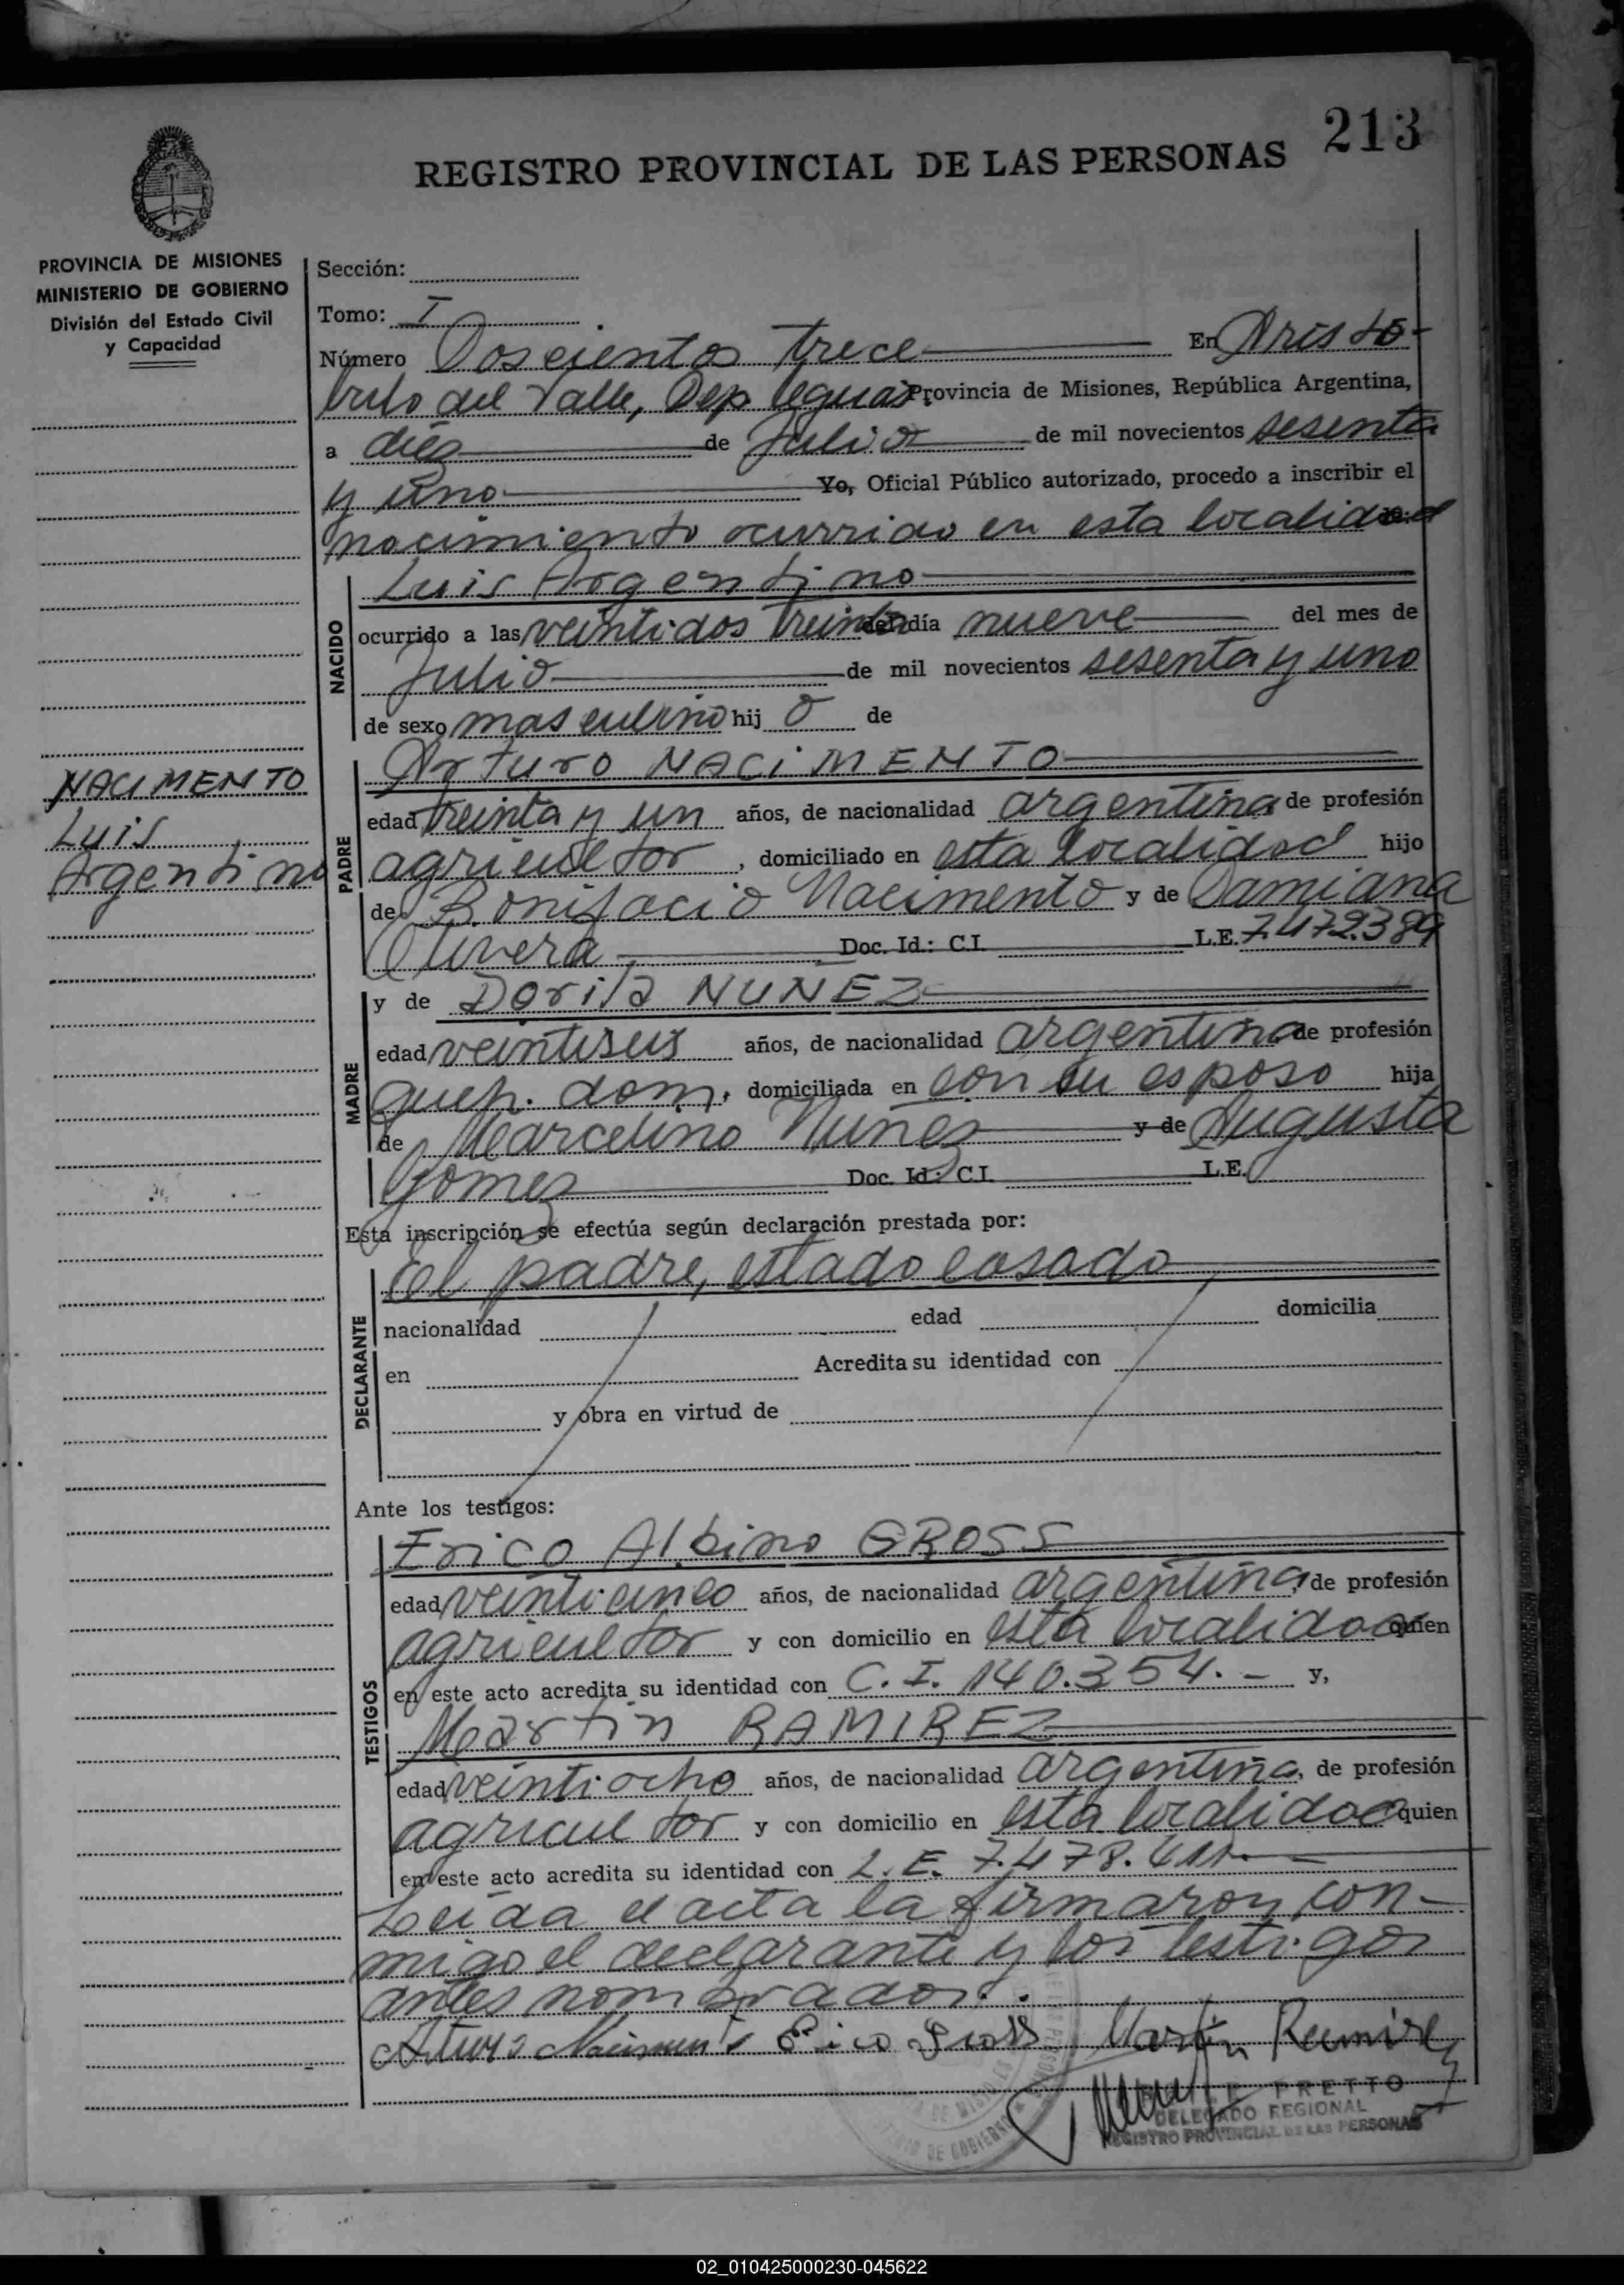 213
REGISTRO PROVINCIAL DE LAS PERSONAS
PROVINCIA DE MISIONES
MINISTERIO DE GOBIERNO
División del Estado Civil
y Capacidad
NACIMENTO
Luis
Argentino
Sección:
Tomo: I
Número Doscientos trece En Aristo-
bulo del Valle, Dep. Provincia de Misiones, República Argentina,
a diez de Julio de mil novecientos sesenta
y uno Yo, Oficial Público autorizado, procedo a inscribir el
nacimiento ocurrido en esta localidad
NACIDO
Luis Argentino
ocurrido a las veintidos treinta del día nueve del mes de
Julio de mil novecientos sesenta y uno
de sexo masculino hij o de
PADRE
Arturo NACIMENTO
edad treinta y un años, de nacionalidad argentina de profesión
agricultor, domiciliado en esta localidad hijo
de Bonifacio Nacimento y de Damiana
Olivera Doc. Id.: C.I. L.E. 7.472.389
MADRE
y de Dorila NUNEZ
edad veintiseis años, de nacionalidad argentina de profesión
queh. dom, domiciliada en con su esposo hija
de Marcelino Nunez y de Augusta
Gomez Doc. Id.: C.I. L.E.
Esta inscripción se efectúa según declaración prestada por:
DECLARANTE
El padre, estado casado
nacionalidad edad domicilia
en Acredita su identidad con
y obra en virtud de
Ante los testigos:
TESTIGOS
Erico Albino GROSS
edad veinticinco años, de nacionalidad argentina, de profesión
agricultor y con domicilio en esta localidad quien
en este acto acredita su identidad con C. I. 140.354.- y,
Martin RAMIREZ
edad veintiocho años, de nacionalidad argentina, de profesión
agricultor y con domicilio en esta localidad quien
en este acto acredita su identidad con L. E. 7.478.
Leida el acta la firmaron con-
migo el declarante y los testigos
antes nombrados.
Arturo Nacimento Erico Gross Martin Ramirez
PRETTO
DELEGADO REGIONAL
REGISTRO PROVINCIAL DE LAS PERSONAS
02_010425000230-045622